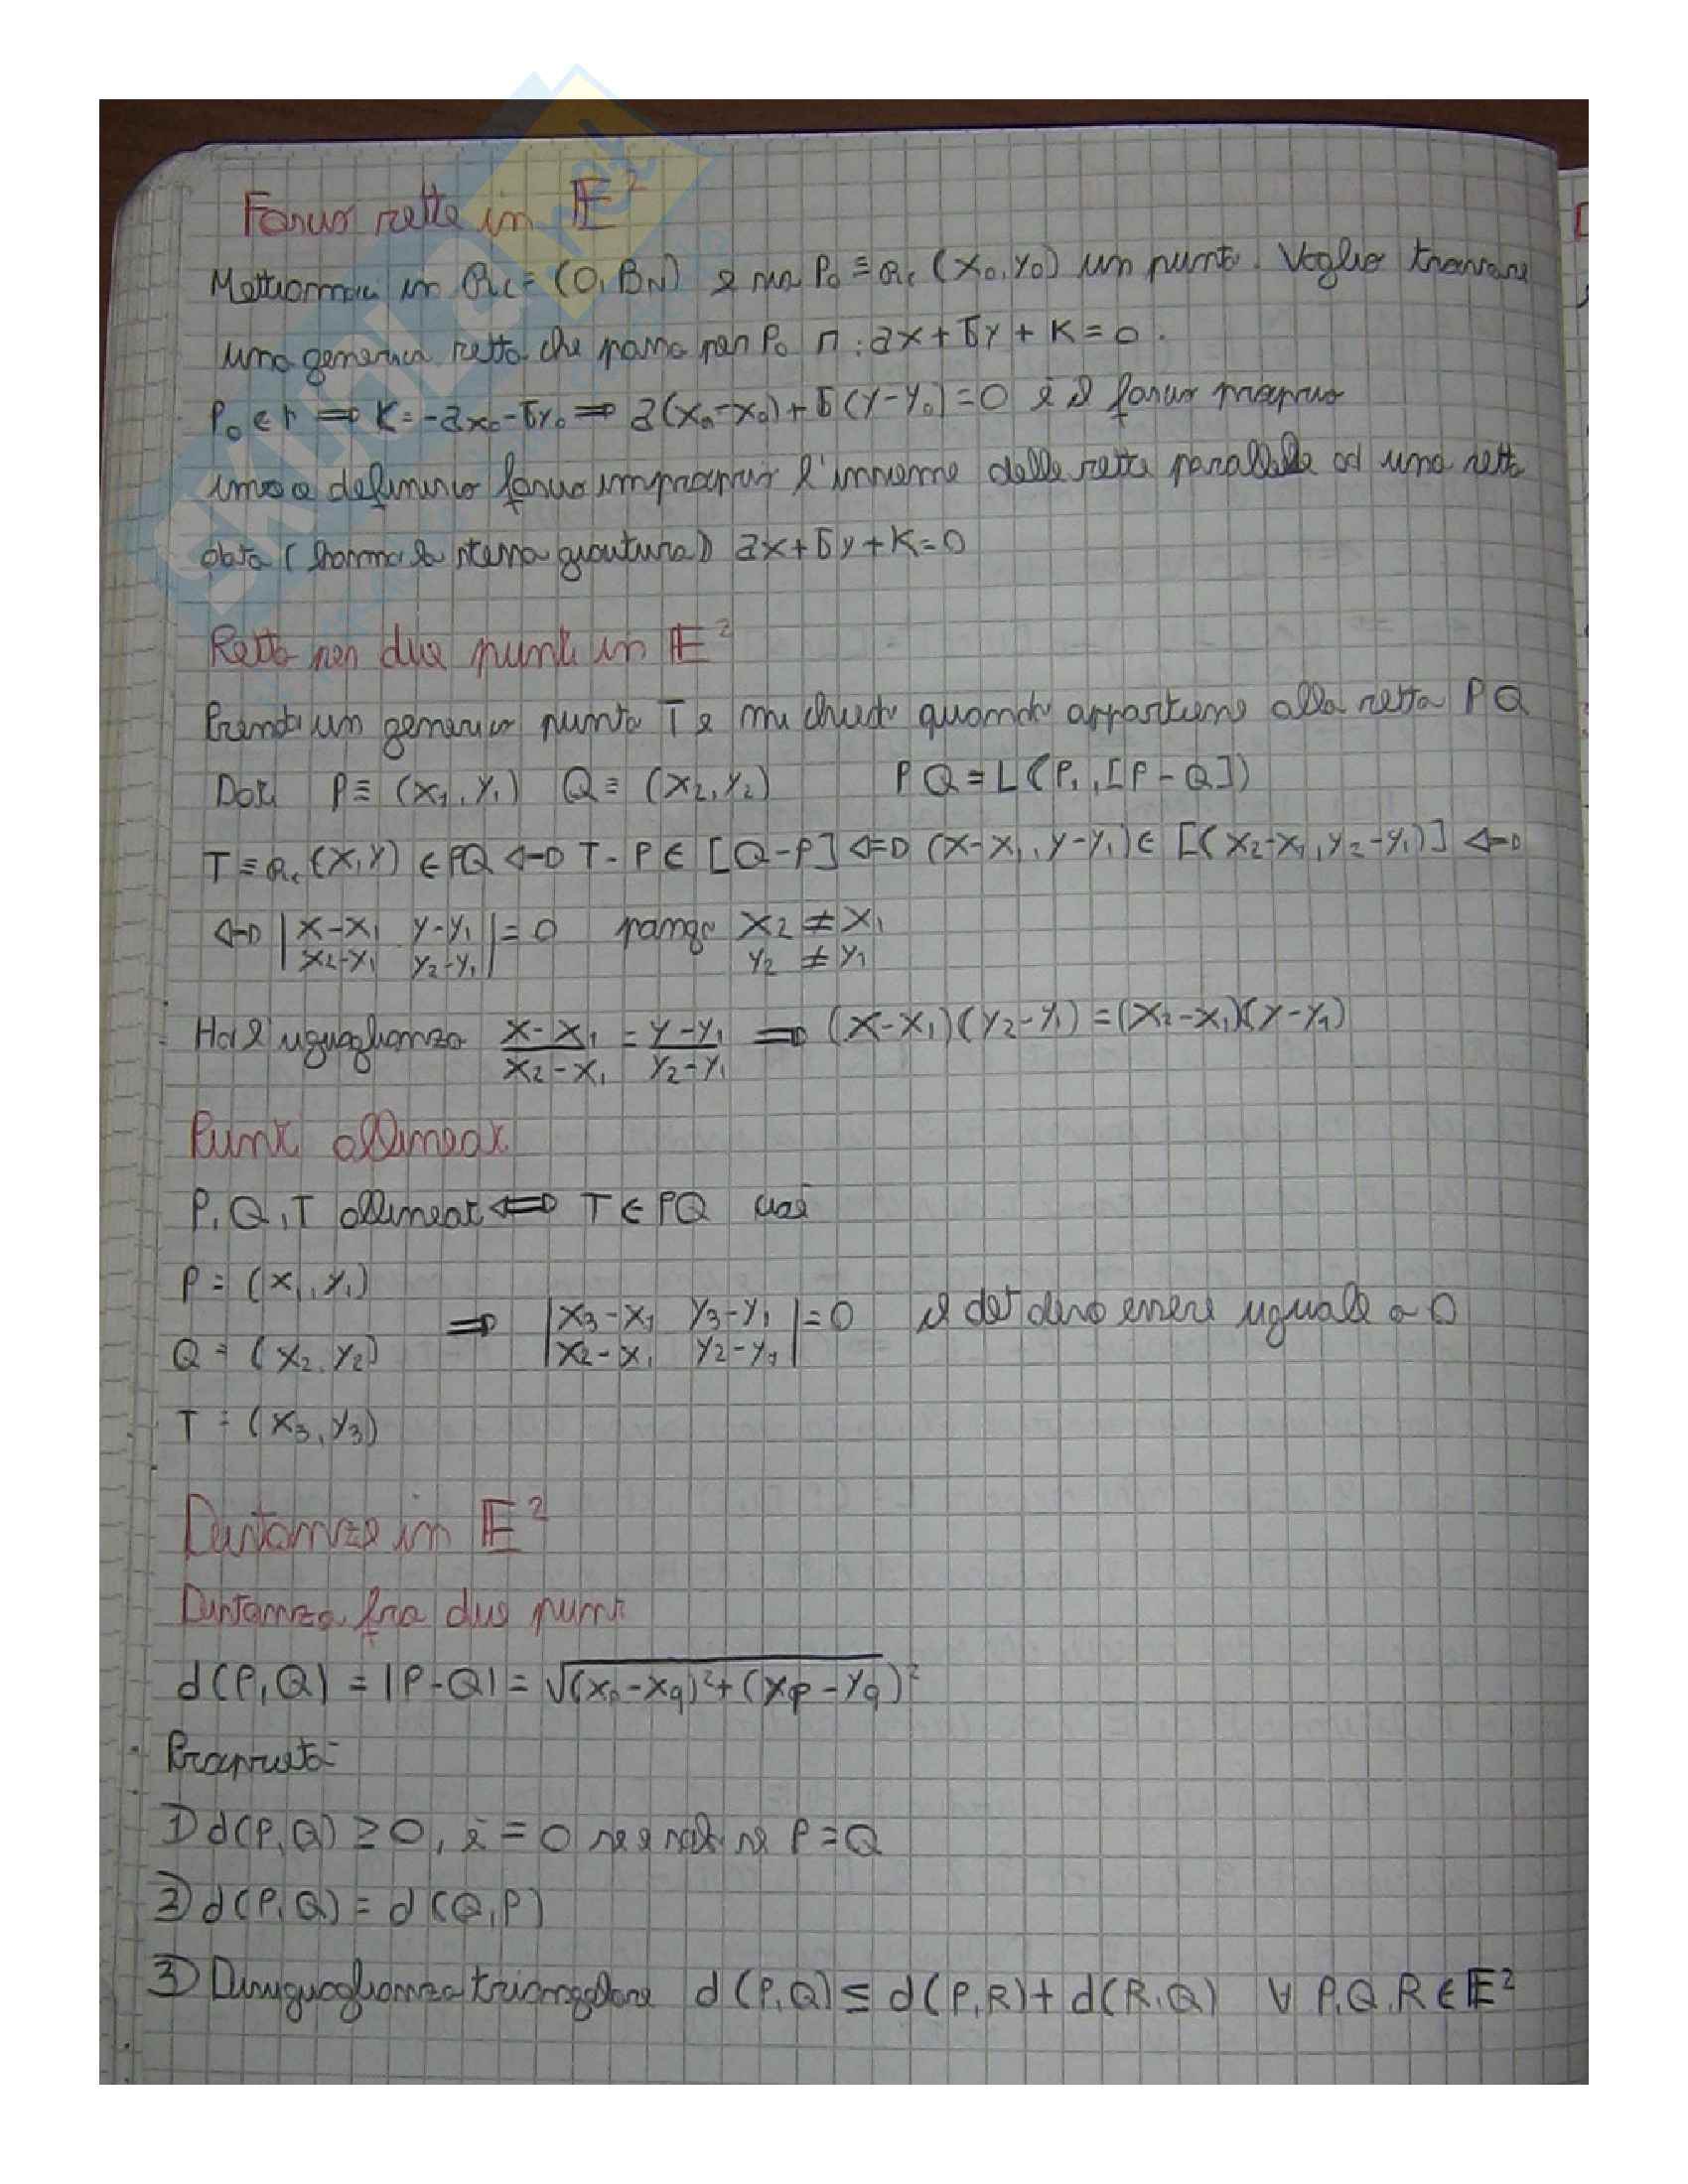 Fascio rette in E²
Mettiamoci in Rc = (O, BN) e sia P0 ≡Rc (x0, y0) un punto. Voglio trovare
una generica retta che passa per P0 r: ax + by + K = 0.
P0 ∈ r ⇒ K = -ax0 - by0 ⇒ a(x0 - x0) + b(y - y0) = 0 è il fascio proprio
definisco fascio improprio l'insieme delle rette parallele ad una retta
data (hanno la stessa giacitura) ax + by + K = 0
Retta per due punti in E²
Prendo un generico punto T e mi chiedo quando appartiene alla retta PQ
Dati P ≡ (x1, y1) Q ≡ (x2, y2) PQ = L(P, [P - Q])
T ≡Rc (x, y) ∈ PQ ⇔ T - P ∈ [Q - P] ⇔ (x - x1, y - y1) ∈ [(x2 - x1, y2 - y1)] ⇔
⇔ | x - x1 y - y1 | = 0 pongo x2 ≠ x1
| x2 - x1 y2 - y1 | y2 ≠ y1
Ho l'uguaglianza (x - x1)/(x2 - x1) = (y - y1)/(y2 - y1) ⇒ (x - x1)(y2 - y1) = (x2 - x1)(y - y1)
Punti allineati
P, Q, T allineati ⇔ T ∈ PQ cioè
P = (x1, y1)
⇒ | x3 - x1 y3 - y1 | = 0 il det deve essere uguale a 0
Q = (x2, y2) | x2 - x1 y2 - y1 |
T = (x3, y3)
Distanze in E²
Distanza fra due punti
d(P, Q) = |P - Q| = √(xp - xq)² + (xp - yq)²
Proprietà
1) d(P, Q) ≥ 0, è = 0 se e solo se P = Q
2) d(P, Q) = d(Q, P)
3) Disuguaglianza triangolare d(P, Q) ≤ d(P, R) + d(R, Q) ∀ P, Q, R ∈ E²
SKUOLA.net